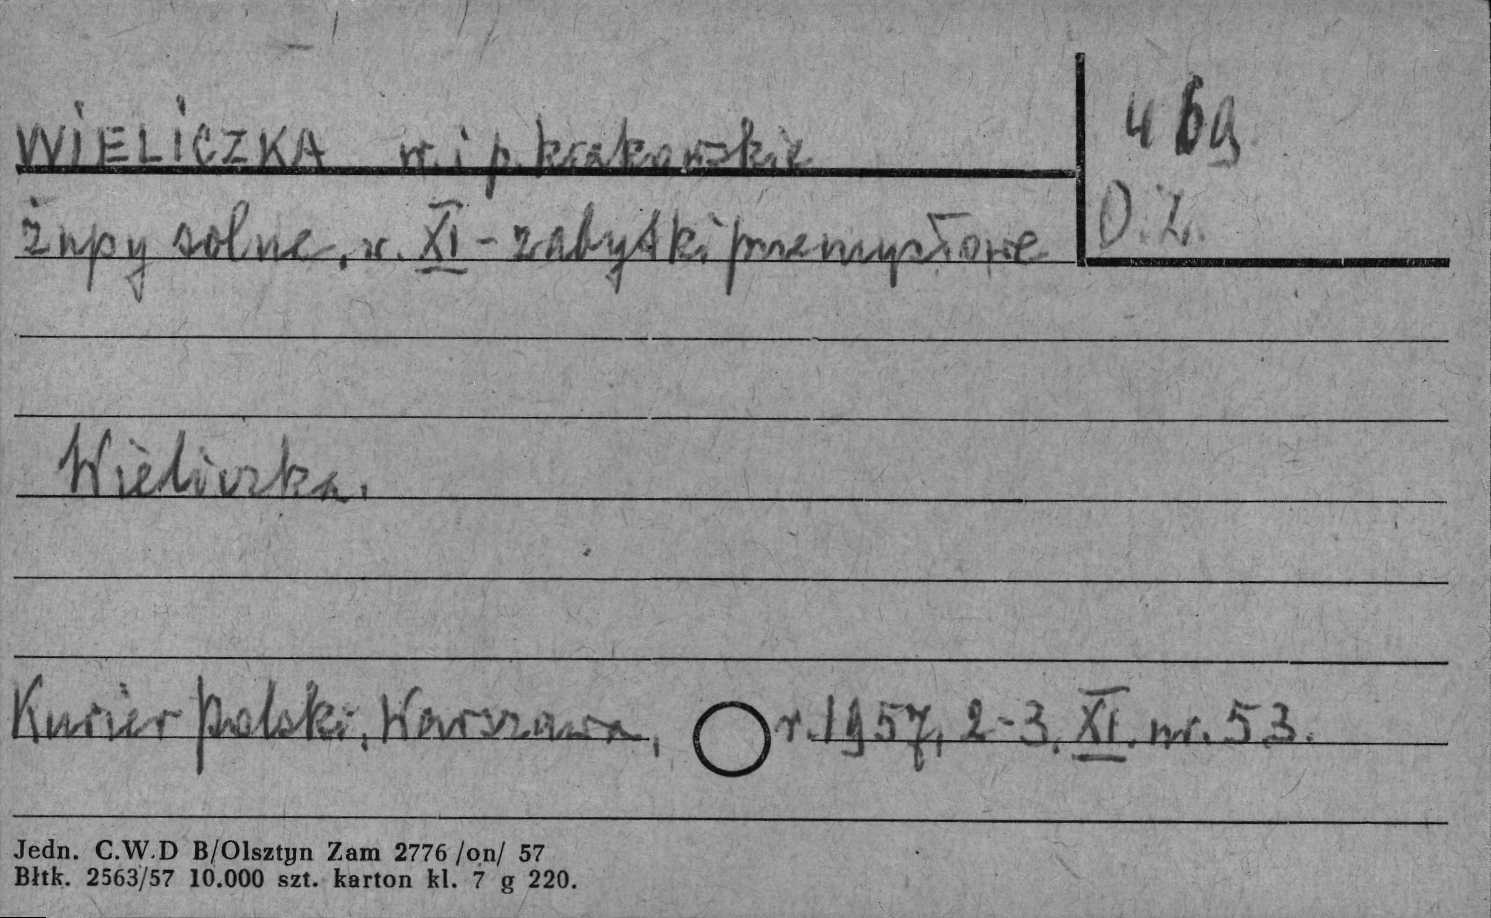 WIELICZKA w. i p. krakowskie
u 69
żupy solne, w. XI - zabytki przemysłowe
D.Z.
Wieliczka.
Kurier Polski, Warszawa, r. 1957, 2-3. XI. nr. 53.
Jedn. C.W.D B/Olsztyn Zam 2776 /on/ 57
Błtk. 2563/57 10.000 szt. karton kl. 7 g 220.